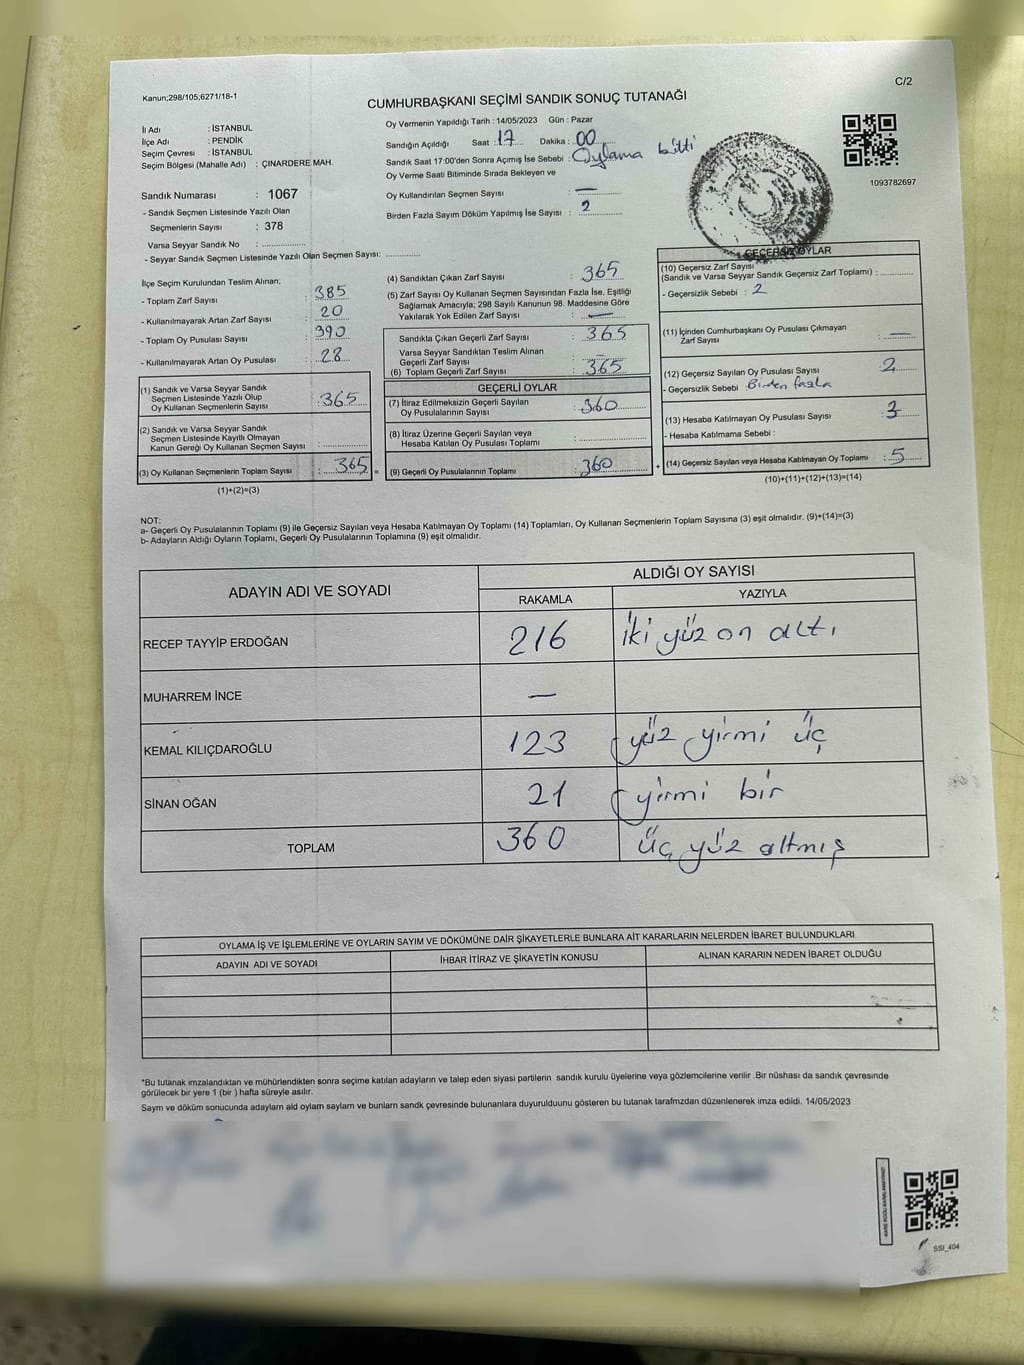 C/2
Kanun;298/105;6271/18-1
CUMHURBAŞKANI SEÇİMİ SANDIK SONUÇ TUTANAĞI
İl Adı : İSTANBUL
İlçe Adı : PENDİK
Seçim Çevresi : İSTANBUL
Seçim Bölgesi (Mahalle Adı) : ÇINARDERE MAH.
Sandık Numarası : 1067
- Sandık Seçmen Listesinde Yazılı Olan
Seçmenlerin Sayısı : 378
Varsa Seyyar Sandık No :
- Seyyar Sandık Seçmen Listesinde Yazılı Olan Seçmen Sayısı:
Oy Vermenin Yapıldığı Tarih : 14/05/2023 Gün : Pazar
Sandığın Açıldığı Saat : 17 Dakika : 00
Sandık Saat 17:00'den Sonra Açımış İse Sebebi : Oylama bitti
Oy Verme Saati Bitiminde Sırada Bekleyen ve
Oy Kullandırılan Seçmen Sayısı : —
Birden Fazla Sayım Döküm Yapılmış İse Sayısı : 2
1093782697
İlçe Seçim Kurulundan Teslim Alınan;
- Toplam Zarf Sayısı : 385
- Kullanılmayarak Artan Zarf Sayısı : 20
- Toplam Oy Pusulası Sayısı : 390
- Kullanılmayarak Artan Oy Pusulası : 28
(1) Sandık ve Varsa Seyyar Sandık
Seçmen Listesinde Yazılı Olup
Oy Kullanan Seçmenlerin Sayısı : 365
(2) Sandık ve Varsa Seyyar Sandık
Seçmen Listesinde Kayıtlı Olmayan
Kanun Gereği Oy Kullanan Seçmen Sayısı :
(3) Oy Kullanan Seçmenlerin Toplam Sayısı : 365 =
(1)+(2)=(3)
(4) Sandıktan Çıkan Zarf Sayısı : 365
(5) Zarf Sayısı Oy Kullanan Seçmen Sayısından Fazla İse, Eşitliği
Sağlamak Amacıyla; 298 Sayılı Kanunun 98. Maddesine Göre
Yakılarak Yok Edilen Zarf Sayısı : —
Sandıkta Çıkan Geçerli Zarf Sayısı : 365
Varsa Seyyar Sandıktan Teslim Alınan
Geçerli Zarf Sayısı : —
(6) Toplam Geçerli Zarf Sayısı : 365
GEÇERLİ OYLAR
(7) İtiraz Edilmeksizin Geçerli Sayılan
Oy Pusulalarının Sayısı : 360
(8) İtiraz Üzerine Geçerli Sayılan veya
Hesaba Katılan Oy Pusulası Toplamı :
(9) Geçerli Oy Pusulalarının Toplamı : 360 +
GEÇERSİZ OYLAR
(10) Geçersiz Zarf Sayısı
(Sandık ve Varsa Seyyar Sandık Geçersiz Zarf Toplamı) :
- Geçersizlik Sebebi : 2
(11) İçinden Cumhurbaşkanı Oy Pusulası Çıkmayan
Zarf Sayısı : —
(12) Geçersiz Sayılan Oy Pusulası Sayısı : 2
- Geçersizlik Sebebi : Birden fazla
(13) Hesaba Katılmayan Oy Pusulası Sayısı : 3
- Hesaba Katılmama Sebebi :
(14) Geçersiz Sayılan veya Hesaba Katılmayan Oy Toplamı : 5
(10)+(11)+(12)+(13)=(14)
NOT:
a- Geçerli Oy Pusulalarının Toplamı (9) ile Geçersiz Sayılan veya Hesaba Katılmayan Oy Toplamı (14) Toplamları, Oy Kullanan Seçmenlerin Toplam Sayısına (3) eşit olmalıdır. (9)+(14)=(3)
b- Adayların Aldığı Oyların Toplamı, Geçerli Oy Pusulalarının Toplamına (9) eşit olmalıdır.
ADAYIN ADI VE SOYADI ALDIĞI OY SAYISI
RAKAMLA YAZIYLA
RECEP TAYYİP ERDOĞAN 216 iki yüz on altı
MUHARREM İNCE —
KEMAL KILIÇDAROĞLU 123 yüz yirmi üç
SİNAN OĞAN 21 yirmi bir
TOPLAM 360 üç yüz altmış
OYLAMA İŞ VE İŞLEMLERİNE VE OYLARIN SAYIM VE DÖKÜMÜNE DAİR ŞİKAYETLERLE BUNLARA AİT KARARLARIN NELERDEN İBARET BULUNDUKLARI
ADAYIN ADI VE SOYADI İHBAR İTİRAZ VE ŞİKAYETİN KONUSU ALINAN KARARIN NEDEN İBARET OLDUĞU
*Bu tutanak imzalandıktan ve mühürlendikten sonra seçime katılan adayların ve talep eden siyasi partilerin sandık kurulu üyelerine veya gözlemcilerine verilir .Bir nüshası da sandık çevresinde
görülecek bir yere 1 (bir ) hafta süreyle asılır.
Sayım ve döküm sonucunda adayların ald oylam sayların ve bunların sandk çevresinde bulunanlara duyurulduunu gösteren bu tutanak tarafmzdan düzenlenerek imza edildi. 14/05/2023
SSI_404